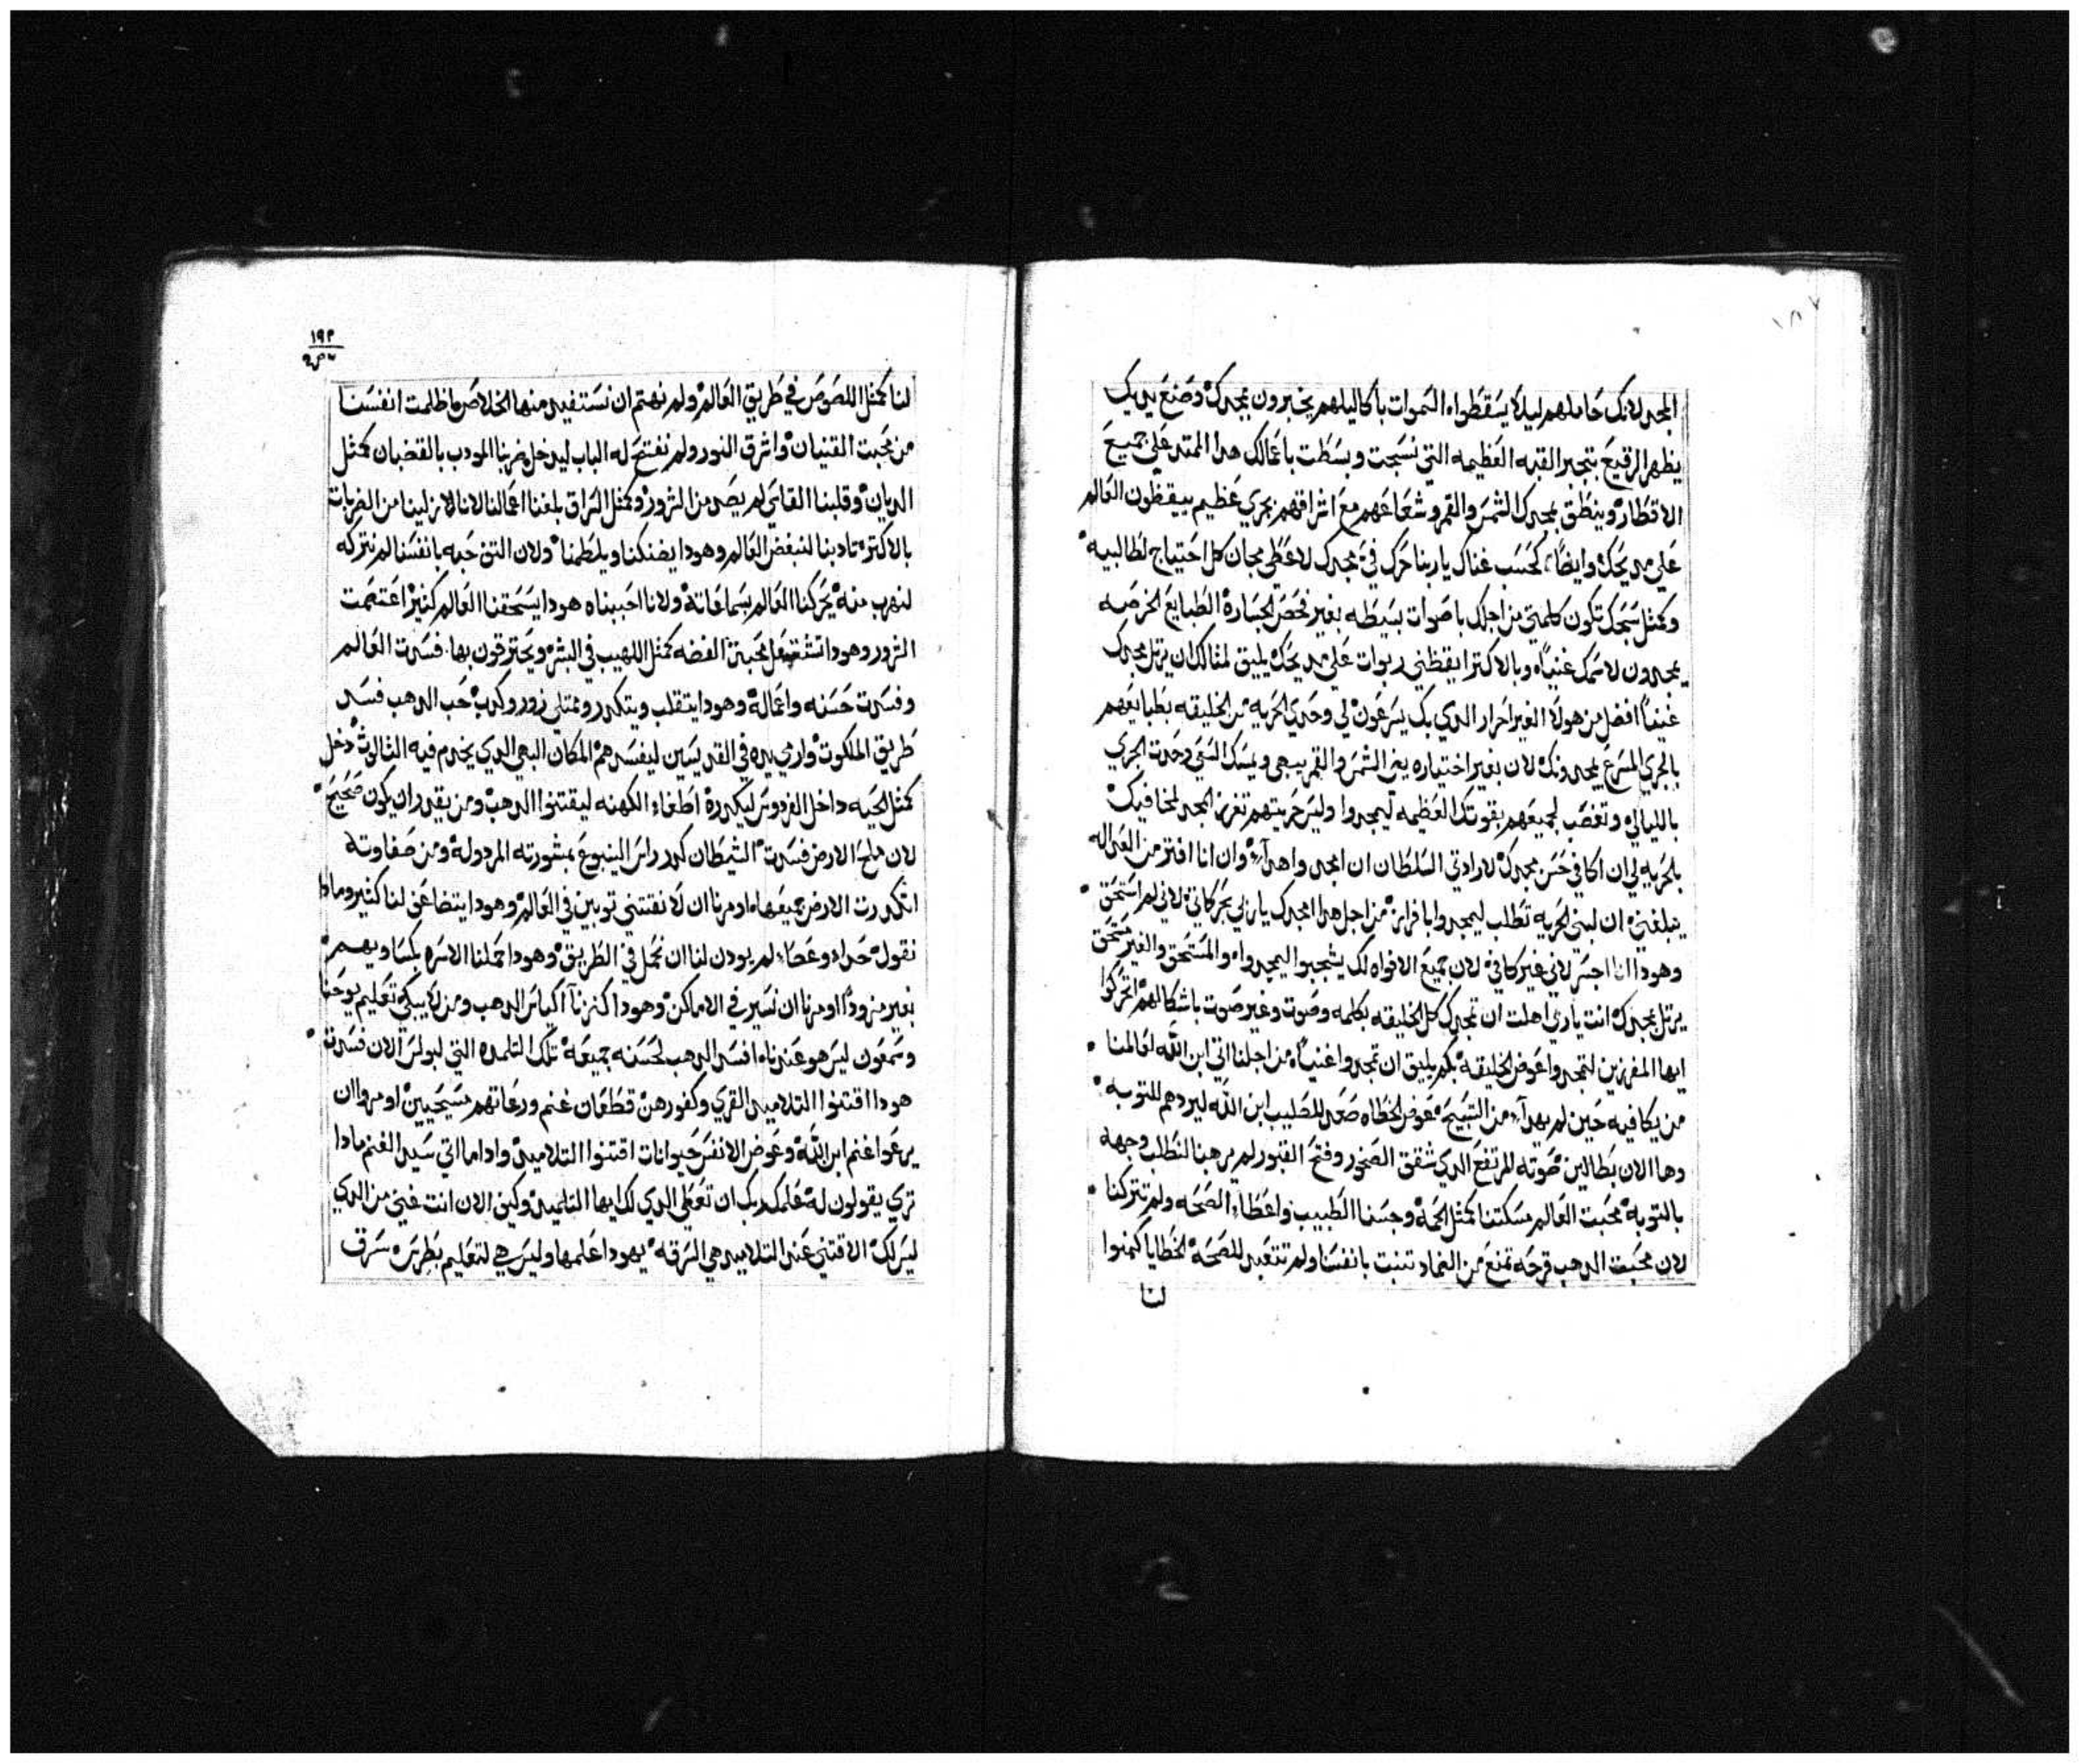 المجد لانك حاملهم ليلا يسقطوا، السموات باكاليلهم يخبرون بمجدك وصنع يديك
يظهر الرقيع بتجبر القبه العظيمه التي نسجت وبسطت باعمالك هدا الممتد علي جميع
الاقطار وينطق بمجدك الشمس والقمر وشعاعهم مع اشراقهم بجري عظيم ييقظون العالم
علي مديحك وايضًا، كحسب غناك يا ربنا حرك في مجدك لاعطي مجان كل احتياج لطالبيه
وكمثل سبحك تكون كلمتي من اجلك باصوات بسيطه بغير فحص الجساره الطبايع الخرصه
يمجدون لاسمك غنيًا، وبالاكتر ايقظني ربوات علي مديحك يليق لمثالك ان يرتل مجدك
غنيًا افضل من هولا الغير احرار الدي بك يسرعون لي وحدي الحريه من الخليقه بطبايعهم
بالجري المسرع يمجدونك لان بغير اختياره يضي الشمس والقمر يجي ويمسك السعي وحدت الجري
بالليالي وتغصب لجميعهم بقوتك العظيمه ليمجدوا وليس حريتهم تفرز المجد لمخافيك
بالحريه لي ان اكافي حسن مجدك لارادتي السلطان ان امجد واهدآ، وان انا افتر من العداله
يبلغني ان لبني الحريه تطلب ليمجدوا بافراز من اجل هدا امجدك يا ربي بحركاتي لاني لم استحق
وهودا انا اجسر لاني غير كافي لان جميع الافواه لك يشجبوا ليمجدوا، والمستحق والغير مستحق
يرتل مجدك انت ياربي اهلت ان تمجدك كل الخليقه بكلمه وصوت وغير صوت باشكالهم اتحركوا
ايها المفرزين لتمجدوا عوض الخليقه بكم يليق ان تمجدوا غنيًا، من اجلنا اتي ابن الله لعالمنا
من يكافيه حين لم يهدآ، من التسبيح عوض الخطاه صعد للصليب ابن الله ليردهم للتوبه
وها الان بطالين صوته المرتفع الدي شقق الصخور وفتح القبور لم يرهبنا لنطلب وجهه
بالتوبه محبت العالم مسكتنا كمثل الحمة وجسنا الطبيب واعطاء الصحه ولم تتركنا
لان محبت الدهب قرحه تمنع من الضماد تنبت بانفسنا ولم تتعبد للصحة الخطايا كمنوا
لنا
١٩٣
لنا كمثل اللصوص في طريق العالم ولم نهتم ان نستفيد منها الخلاص واظلمت انفسنا
من محبت القنيان واشرق النور ولم نفتح له الباب ليدخل ضربنا المودب بالقضبان كمثل
الديان وقلبنا القاسي لم يصد من الشرور وكمثل السراق بلغنا اعمالنا لاننا لانزلينا من الضربات
بالاكتر، تادبنا لنبغض العالم وهودا يضنكنا ويلطمنا ولان التنن حبه بانفسنا لم نتركه
لنهرب منه يحركنا العالم بسماعاته ولانا احببناه هودا يسحقنا العالم كنيز اعتصمت
الشرور وهودا تشتعل محبتة الفضه كمثل اللهيب في البشر ويحترقون بها. فسدت العالم
وفسدت حسنه واعماله وهودا يتقلب ويتكدر وممتلي زور وكدب حب الدهب فسد
طريق الملكوت وارمي يده في القديسين ليفسدهم المكان البهي الدي يخدم فيه الثالوث دخل
كمثل الحيه داخل الفردوس ليكدره اطغاء الكهنه ليقتنوا الدهب ومن يقدر ان يكون صحيح
لان ملح الارض فسدت الشيطان كدر راس الينبوع بمشورته المردولة ومن صفاوته
اتكدرت الارض جميعها، اومرنا ان لا نقتني توبين في العالم وهودا يتضاعف لنا كثير وما دا
نقول حداء وعصاء لم يودن لنا ان نحمل في الطريق وهودا حملنا الاسره بكساويهم
بغير مزودًا اومرنا ان نسير في الاماكن وهودا كنزنآ اكياس الدهب ومن لا يبكي تعليم يوحنا
وسمعون ليس هو عندنا، افسد الدهب لحسنه جميعة تلك التلمده التي لبولس الان فسدت
هودا اقتنوا التلاميد القري وكفورهن قطعان غنم ورعاتهم مسيحيين اومروا ان
يرعوا غنم ابن الله وعوض الانفس حيوانات اقتنوا التلاميد وادا ما اتي سيد الغنم مادا
تري يقولون له علمك ربك ان تعطي الدي لك ايها التلميد وكين الان انت غني من الدي
ليس لك الاقتني عند التلاميد هي السرقه يهودا علمها وليس هي لتعليم بطرس، سرق